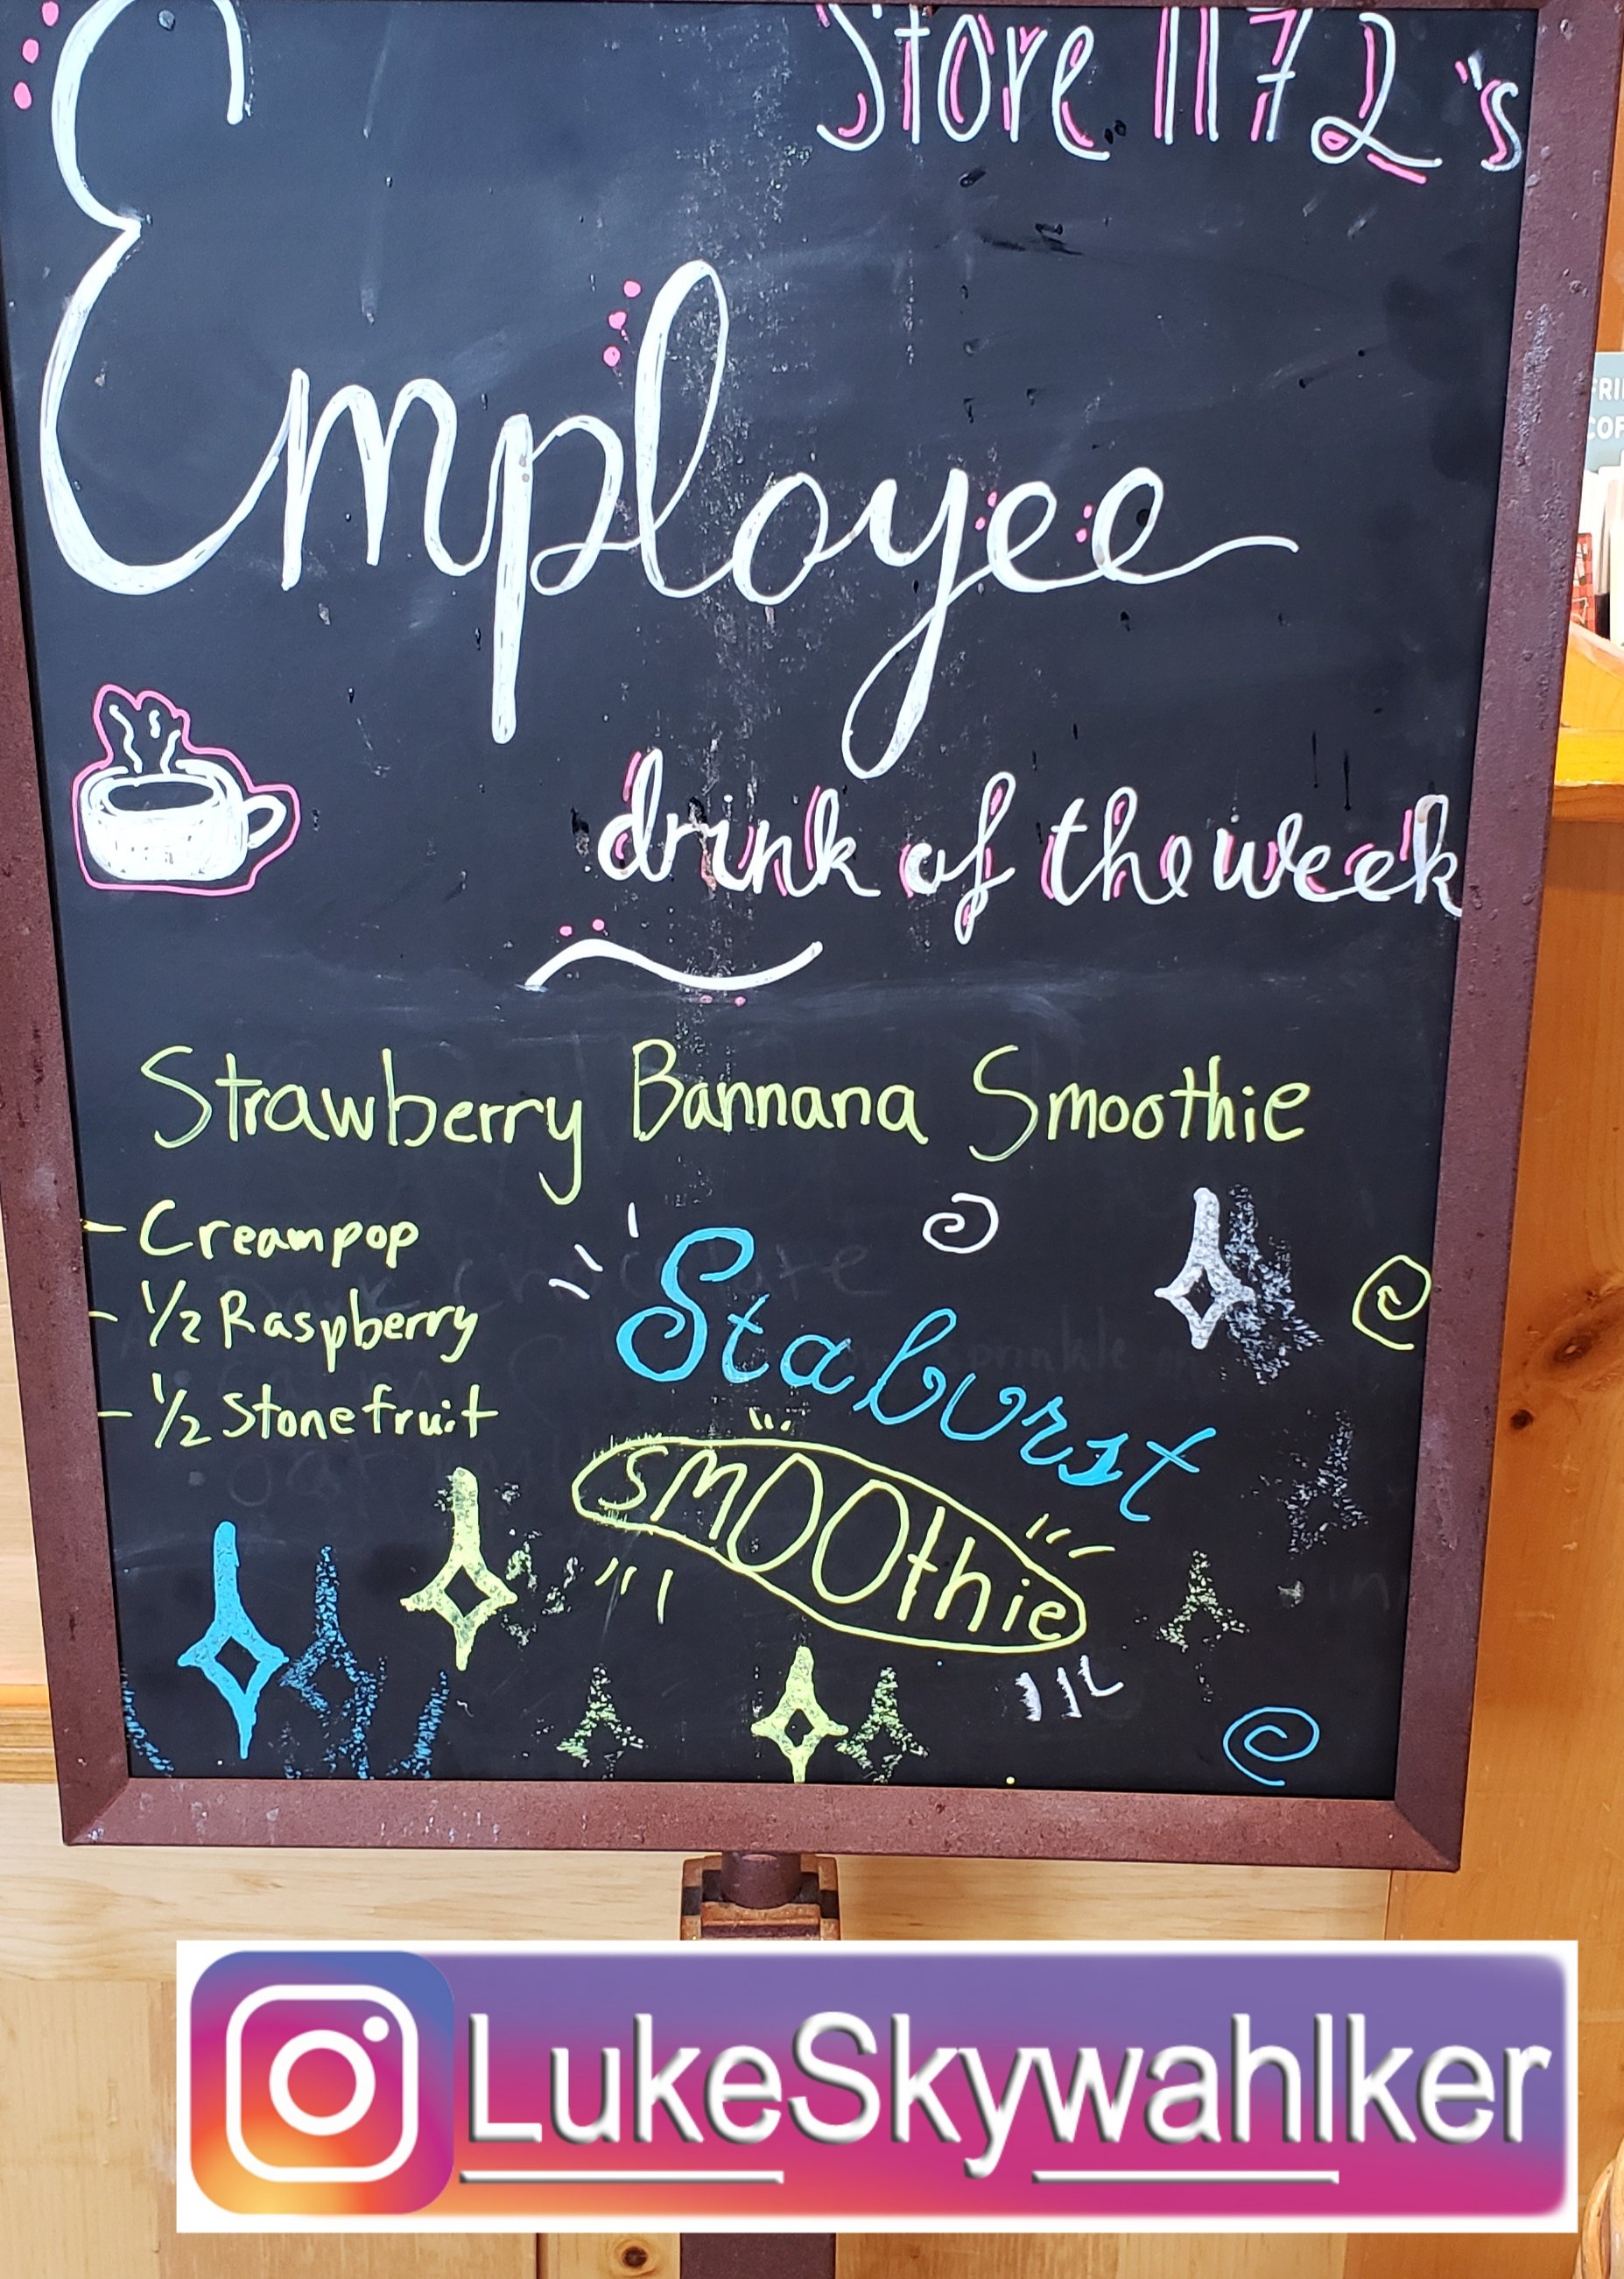 Store 1172's
Employee
drink of the week
Strawberry Bannana Smoothie
- Creampop
- 1/2 Raspberry
- 1/2 Stonefruit
Staburst
smOOthie
LukeSkywahlker